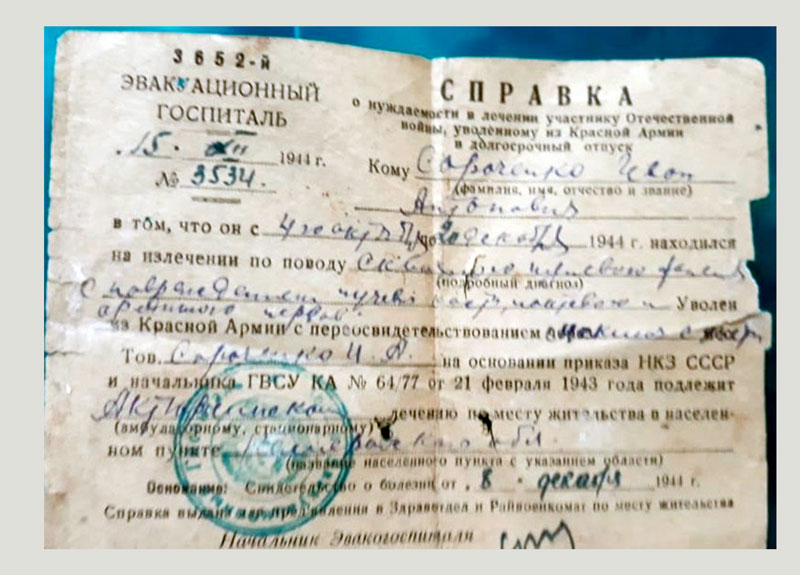 3652-й
ЭВАКУАЦИОННЫЙ
ГОСПИТАЛЬ
15. XII 1944 г.
№ 3534.
СПРАВКА
о нуждаемости в лечении участнику Отечественной
войны, уволенному из Красной Армии
в долгосрочный отпуск
Кому Сороченко Иван
(фамилия, имя, отчество и звание)
Антонович
в том, что он с 4го окт по 20 декабр 1944 г. находился
на излечении по поводу
(подробный диагноз)
с повреждением Уволен
нерва
из Красной Армии с переосвидетельствованием
Тов. Сороченко И. А. на основании приказа НКЗ СССР
и начальника ГВСУ КА № 64/77 от 21 февраля 1943 года подлежит
лечению по месту жительства в населен-
(амбулаторному, стационарному)
ном пункте обл.
(название населённого пункта с указанием области)
Основание: Свидетельство о болезни от 8 декабря 1944 г.
Справка выдана для предъявления в Здравотдел и Райвоенкомат по месту жительства
Начальник Эвакогоспиталя